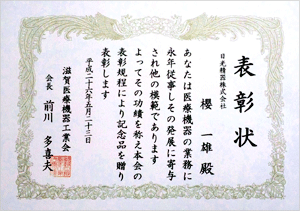 表彰状
日光精器株式会社
櫻 一雄殿
あなたは医療機器の業務に
永年従事しその発展に寄与
され他の模範であります
よってその功績を称え本会の
表彰規程により記念品を贈り
表彰します
平成二十六年五月二十三日
滋賀医療機器工業会
会長 前川 多喜夫